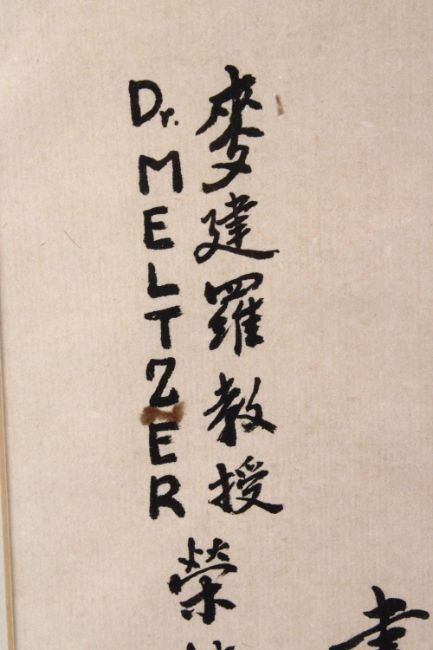 麥建羅教授
Dr. MELTZER
榮